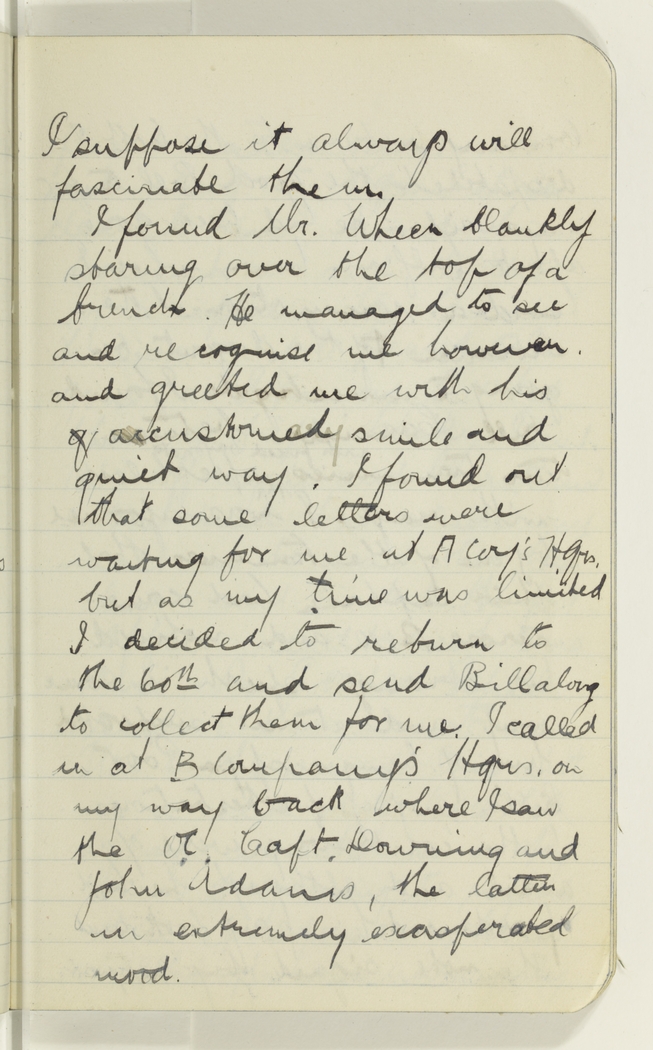 I suppose it always will
fascinate them.
I found Mr. Wheen blankly
staring over the top of a
trench. He managed to see
and recognise me however.
and greeted me with his
accustomed smile and
quiet way. I found out
that some letters were
waiting for me at A Coy's Hqrs.
but as my time was limited
I decided to return to
the 60th and send Bill along
to collect them for me. I called
in at B Company's Hqrs. on
my way back where I saw
the OC. Capt. Downing and
John Adams, the latter
in extremely exasperated
mood.